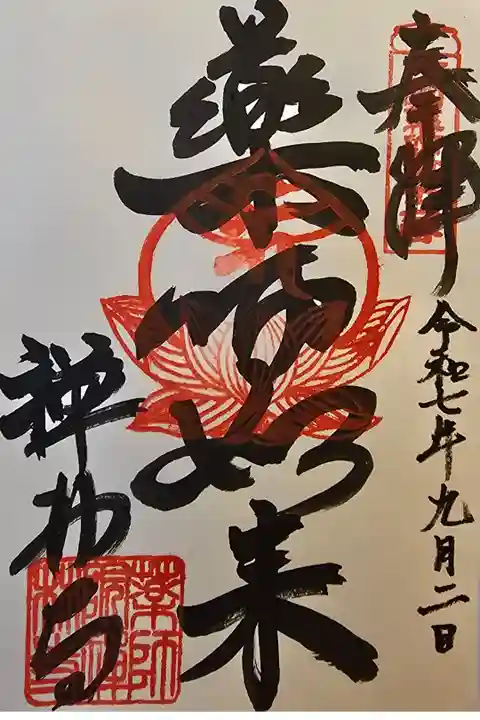 奉拝
令和七年九月二日
薬師如来
禅林寺
薬師